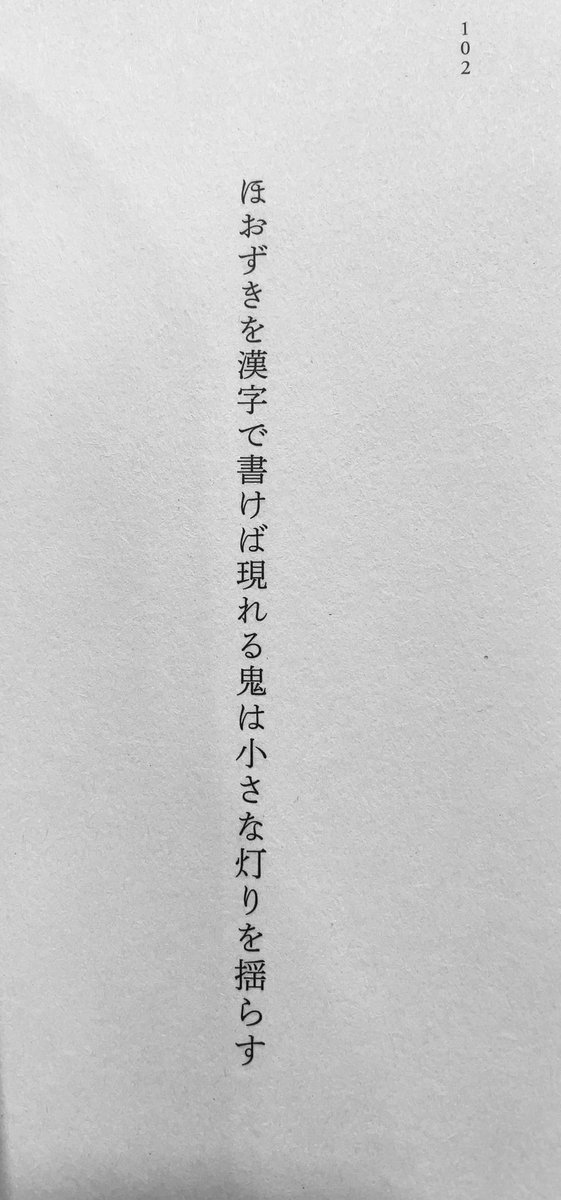 102
ほおずきを漢字で書けば現れる鬼は小さな灯りを揺らす